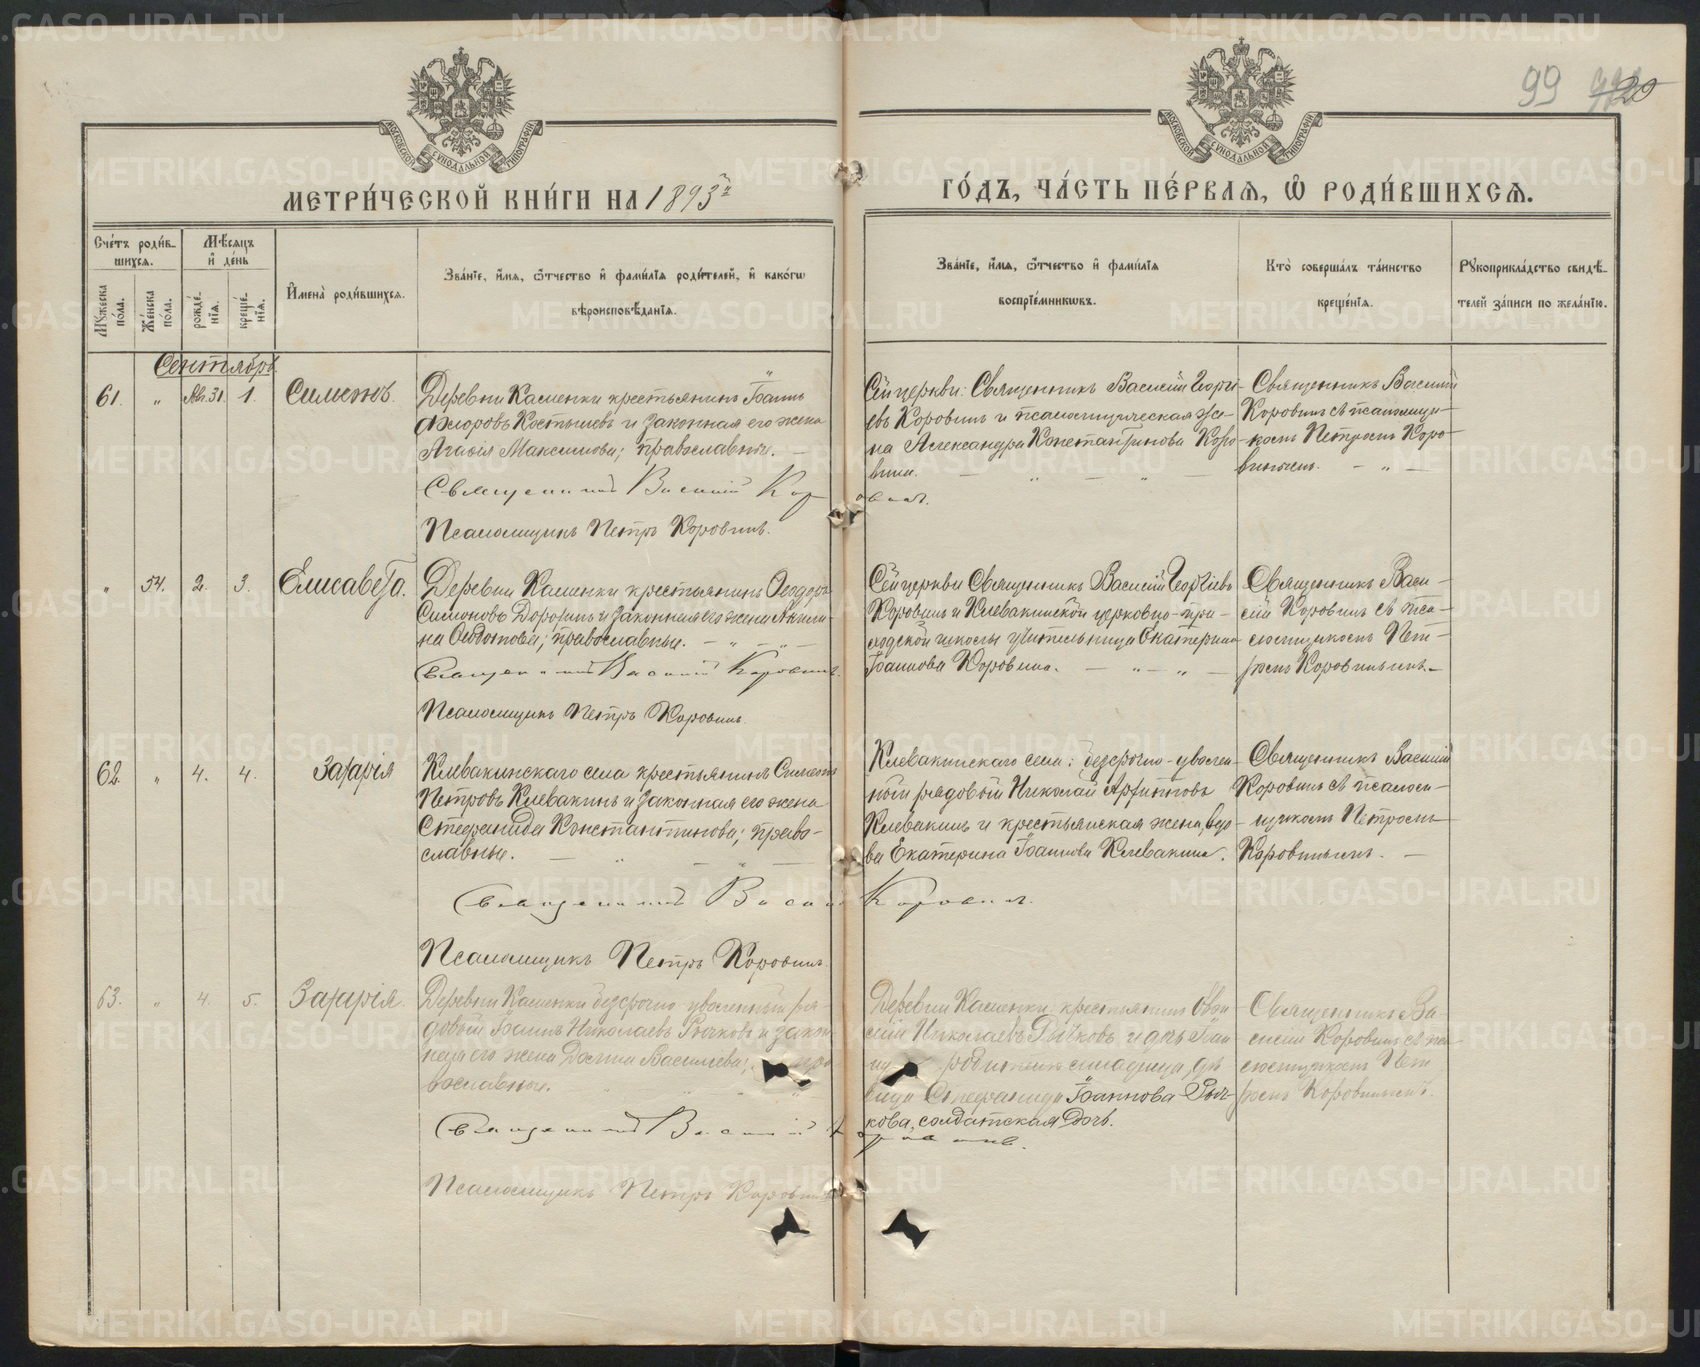 99 20
МОСКОВСКОЙ СУНОДАЛЬНОЙ ТИПОГРАФІИ
МОСКОВСКОЙ СУНОДАЛЬНОЙ ТИПОГРАФІИ
МЕТРИ́ЧЕСКОЙ КНИ́ГИ НА 1893й
ГО́ДЪ, ЧА́СТЬ ПЕ́РВАѦ, Ѡ РОДИ́ВШИХСѦ.
Сче́тъ роди́в-
шихсѧ.
Мѣ́сѧцъ
и҆ де́нь
Мꙋ́жеска по́ла.
Же́нска по́ла.
рожде́-нїѧ.
креще́-нїѧ.
И҆мена̀ роди́вшихсѧ.
Зва́нїе, и҆́мѧ, ѻ҆́тчество и҆ фами́лїѧ роди́телей, и҆ како́гѡ
вѣроисповѣ́данїѧ.
Зва́нїе, и҆́мѧ, ѻ҆́тчество и҆ фами́лїѧ
воспрїе́мникѡвъ.
Кто̀ соверша́лъ та́инство
креще́нїѧ.
Рꙋкоприкла́дство свидѣ́-
телей за́писи по жела́нїю.
Сентябрь
61. " Ав. 31. 1. Симеонъ.
Деревни Каменки крестьянинъ Іоаннъ
Ѳеодоровъ Костылевъ и законная его жена
Агафія Максимова; православные. —
Священникъ Василій Коровинъ.
Псаломщикъ Петръ Коровинъ.
Сей церкви: Священникъ Василій Георгі-
евъ Коровинъ и псаломщическая же-
на Александра Константинова Коро-
вина. — " — " —
Священникъ Василій
Коровинъ съ псаломщи-
комъ Петромъ Коро-
винымъ. — " —
" 54. 2. 3. Елисавета.
Деревни Каменки крестьянинъ Ѳеодоръ
Симоновъ Дорохинъ и законная его жена Акили-
на Ѳедотова; православные. — " — " —
Священникъ Василій Коровинъ.
Псаломщикъ Петръ Коровинъ.
Сей церкви Священникъ Василій Георгіевъ
Коровинъ и Клевакинской церковно-при-
ходской школы учительница Екатерина
Іоаннова Коровина. — " — " —
Священникъ Васи-
лій Коровинъ съ пса-
ломщикомъ Пет-
ромъ Коровинымъ. —
62. " 4. 4. Захарія
Клевакинскаго села крестьянинъ Симеонъ
Петровъ Клевакинъ и законная его жена
Стефанида Константинова; право-
славные. — " — " —
Священникъ Василій Коровинъ.
Псаломщикъ Петръ Коровинъ.
Клевакинскаго села: безсрочно-уволен-
ный рядовой Николай
Клевакинъ и крестьянская жена, вдо-
ва Екатерина Іоаннова Клевакина.
Священникъ Василій
Коровинъ съ псалом-
щикомъ Петромъ
Коровинымъ. —
63. " 4. 5. Захарія.
Деревни Каменки безсрочно уволенный ря-
довой Іоаннъ Николаевъ Рычковъ и закон-
ная его жена Васильева; пра-
вославные.
Священникъ Василій Коровинъ.
Псаломщикъ Петръ Коровинъ
Деревни Каменки крестьянинъ
Николаевъ Рычковъ и
дѣ-
вица Стефанида Іоаннова Рыч-
кова, солдатская дочь.
Священникъ Ва-
силій Коровинъ съ пса-
ломщикомъ Пет-
ромъ Коровинымъ.
METRIKI.GASO-URAL.RU